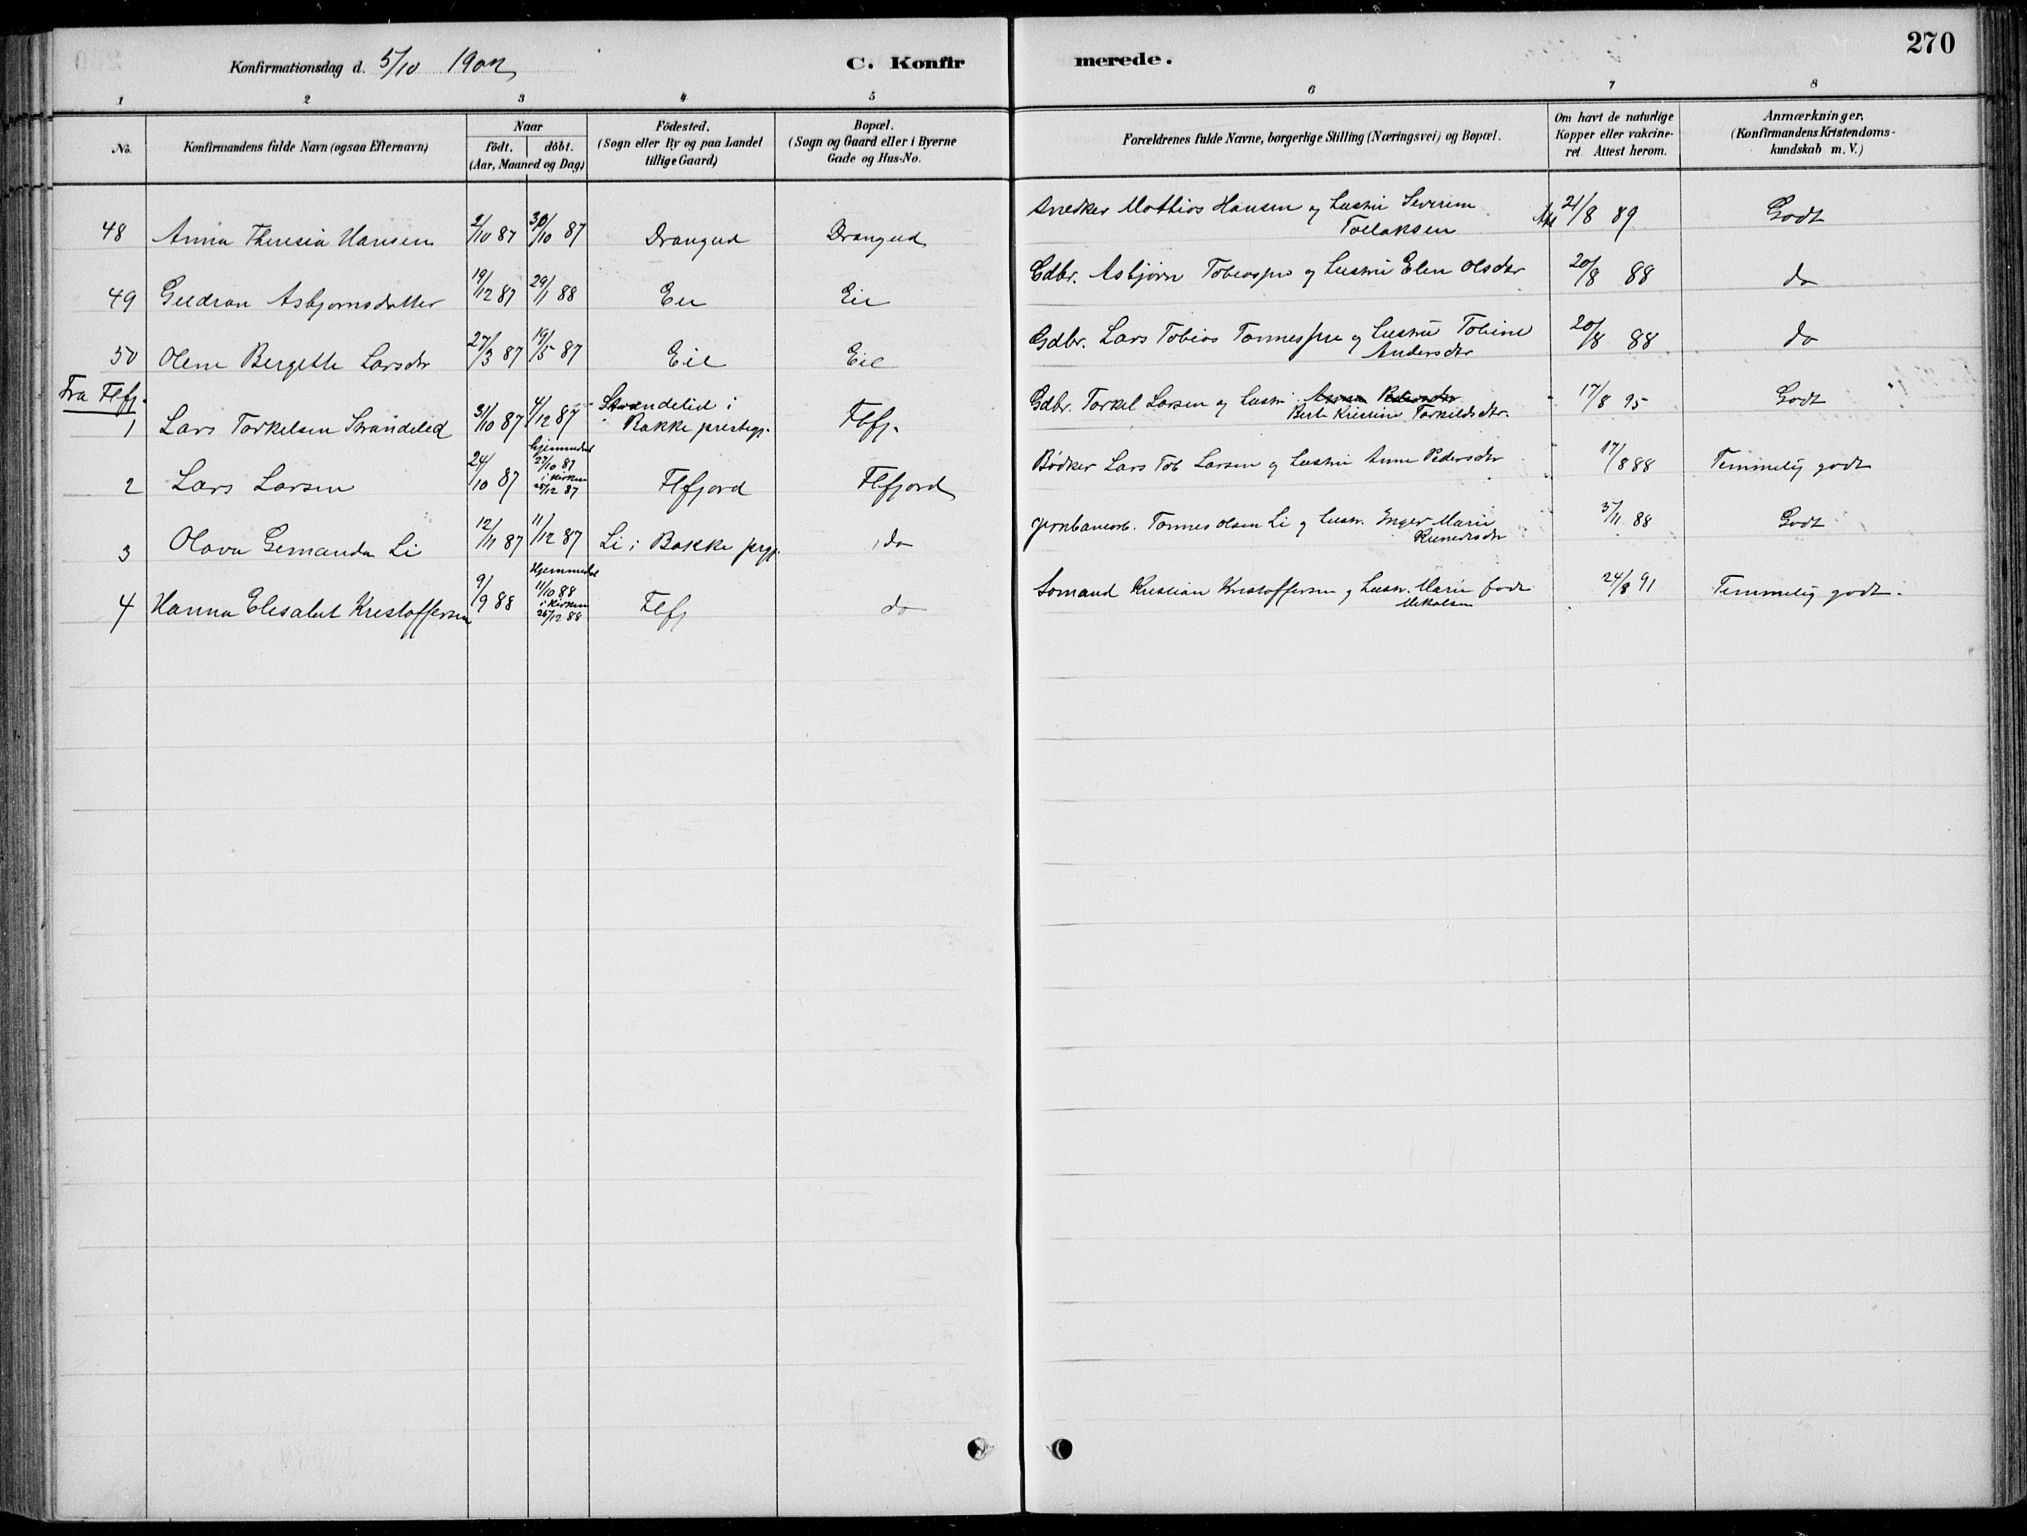 270
Konfirmationsdag d. 5/10 1902
C. Konfirmerede.
1 2 3 4 5 6 7 8
No.
Konfirmandens fulde Navn (ogsaa Efternavn)
Naar
födt. döbt.
(Aar, Maaned og Dag)
Födested.
(Sogn eller By og paa Landet
tillige Gaard)
Bopæl.
(Sogn og Gaard eller i Byerne
Gade og Hus-No.
Forældrenes fulde Navne, borgerlige Stilling (Næringsvei) og Bopæl.
Om havt de naturlige
Kopper eller vakcine-
ret. Attest herom.
Anmærkninger.
(Konfirmandens Kristendoms-
kundskab m. V.)
48 Anna Theresia Hansen 2/10 87 30/10 87 Drangeid Drangeid Snedker Mathias Hansen og Hustru Severine 21/8 89 Godt
Tollaksen
49 Gudrun Asbjørnsdatter 19/12 87 29/1 88 Eie Eie Gdbr. Asbjørn Tobiassen og Hustru Elen Olsdtr 20/8 88 do
50 Olene Bergette Larsdtr 27/3 87 19/5 87 Eie Eie Gdbr. Lars Tobias Tønnessen og Hustru Tobine 20/8 88 do
Andersdtr
Fra Flfj.
1 Lars Torkelsen Strandelid 31/10 87 4/12 87 Strandelid i Flfj. Gdbr. Torkel Larsen og Hustru Anna Pedersdtr 17/8 95 Godt
Bakke prestegj. Bert Kristine Torkildsdtr.
2 Lars Larsen 24/10 87 hjemmedøbt 27/10 87 i Kirken 26/12 87 Flfjord Flfjord Bødker Lars Tob Larsen og Hustru Anne Pedersdtr 17/8 88 Temmelig godt
3 Olava Gemanda Li 12/11 87 11/12 87 Li i Bakke prgj. do Jernbanearb. Tønnes Olsen Li og Hustr. Inger Marie 5/11 88 Godt
4 Hanna Elisabet Kristoffersen 9/9 88 Hjemmedøbt 11/10 88 i Kirken 26/12 88 Flfj do Sømand Kristian Kristoffersen og Hustr. Marie født 24/8 91 Temmelig godt.